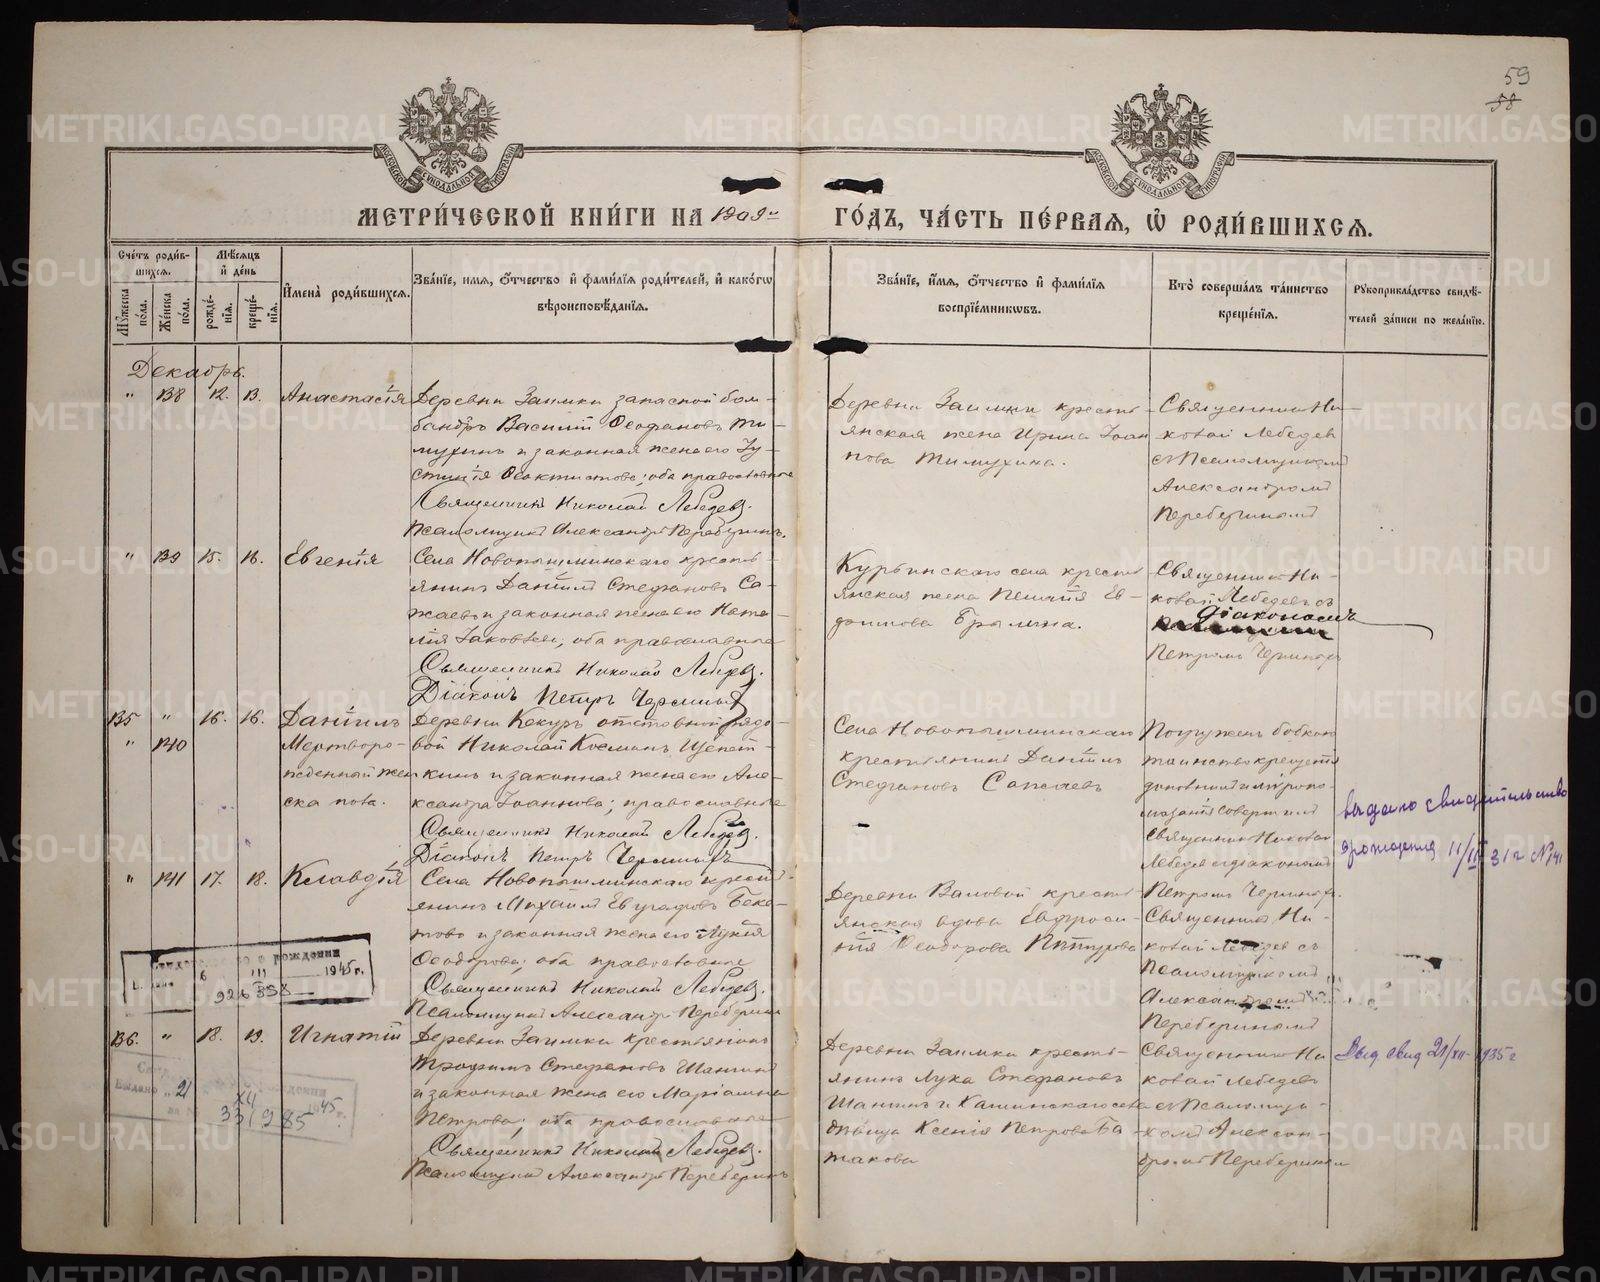 59
58
МОСКОВСКОЙ СУНОДАЛЬНОЙ ТИПОГРАФІИ
МОСКОВСКОЙ СУНОДАЛЬНОЙ ТИПОГРАФІИ
МЕТРИ́ЧЕСКОЙ КНИ́ГИ НА 1909й ГО́ДЪ, ЧА́СТЬ ПЕ́РВАЯ, Ѽ РОДИ́ВШИХСЯ.
Сче́тъ роди́в-
шихся.
Мꙋ́жеска по́ла.
Же́нска по́ла.
Мѣ́сяцъ
и҆ де́нь
рожде́-
нїя.
креще́-
нїя.
И҆мена̀ роди́вшихся.
Зва́нїе, имя, ѻ҆́тчество и҆ фами́лїя роди́телей, и҆ како́гѡ
вѣроисповѣ́данїя.
Зва́нїе, и҆́мя, ѻ҆́тчество и҆ фами́лїя
воспрїе́мникѡвъ.
Кто̀ соверша́лъ та́инство
креще́нїя.
Рꙋкоприкла́дство свидѣ́-
телей за́писи по жела́нїю.
Декабрь.
" 138 12. 13. Анастасія
Деревни Заимки запасной бом-
бандръ Василій Ѳеофановъ Ти-
мухинъ и законная жена его Iу-
стинія Ѳеоктистова; оба православные
Священникъ Николай Лебедевъ.
Псаломщикъ Александръ Переберинъ.
Деревни Заимки кресть-
янская жена Ирина Іоан
нова Тимухина.
Священник Ни-
колай Лебедев
съ Псаломщикомъ
Александромъ
Перебериномъ
" 139 15. 16. Евгенія
Села Новопышминскаго кресть-
янинъ Даніилъ Стефановъ Са-
жаевъ и законная жена его Ната-
лія Іаковлева; оба православные
Священникъ Николай Лебедевъ.
Діаконъ Петръ
Курьинскаго села кресть
янская жена Пелагія Ев-
докимова Брылина.
Священник Ни-
колай Лебедевъ съ
діакономъ
Петромъ
135 " 16. 16. Даніилъ
" 140 Мертворо-
жденный жен
ска пола.
Деревни Кекуръ отставной рядо-
вой Николай Космин Щепет-
кинъ и законная жена его Але-
ксандра Іоаннова; православные
Священникъ Николай Лебедевъ.
Діаконъ Петръ
Села Новопышминскаго
крестьянинъ Даніилъ
Стефановъ Сажаевъ
Погружен бабкою
таинство крещенія
дополнилъ и мѵропо-
мазанія совершилъ
Священник Николай
Лебедев съ діакономъ
Петромъ
выдано свидетельство
о рождения 11/II 31 г №141
" 141 17. 18. Клавдія
Села Новопышминскаго кресть-
янинъ Михаилъ Евграфовъ Беке-
тово и законная жена его Лукія
Ѳеодорова; оба православные
Священникъ Николай Лебедевъ.
Псаломщикъ Александръ Переберинъ
Деревни Валовой кресть-
янская вдова Евфроси-
нія Ѳеодорова
Священник Ни-
колай Лебедев съ
Псаломщикомъ
Александромъ
Перебериномъ
Свидетельство о рождении
Выдано 6 III 1945 г.
926898
136. " 18. 19. Игнатій
Деревни Заимки крестьянинъ
Трофимъ Стефановъ Шанинъ
и законная жена его Маріамна
Петрова; оба православные
Священникъ Николай Лебедевъ.
Псаломщикъ Александръ Переберинъ
Деревни Заимки кресть-
янинъ Лука Стефановъ
Шанинъ и Кашинскаго села
дѣвица Ксенія Петрова
Священник Ни
колай Лебедевъ
съ Псаломщи-
комъ Алексан-
дромъ Перебериным
Выд свид 21/XII-1935 г
Выдано 21 1945 г.
METRIKI.GASO-URAL.RU